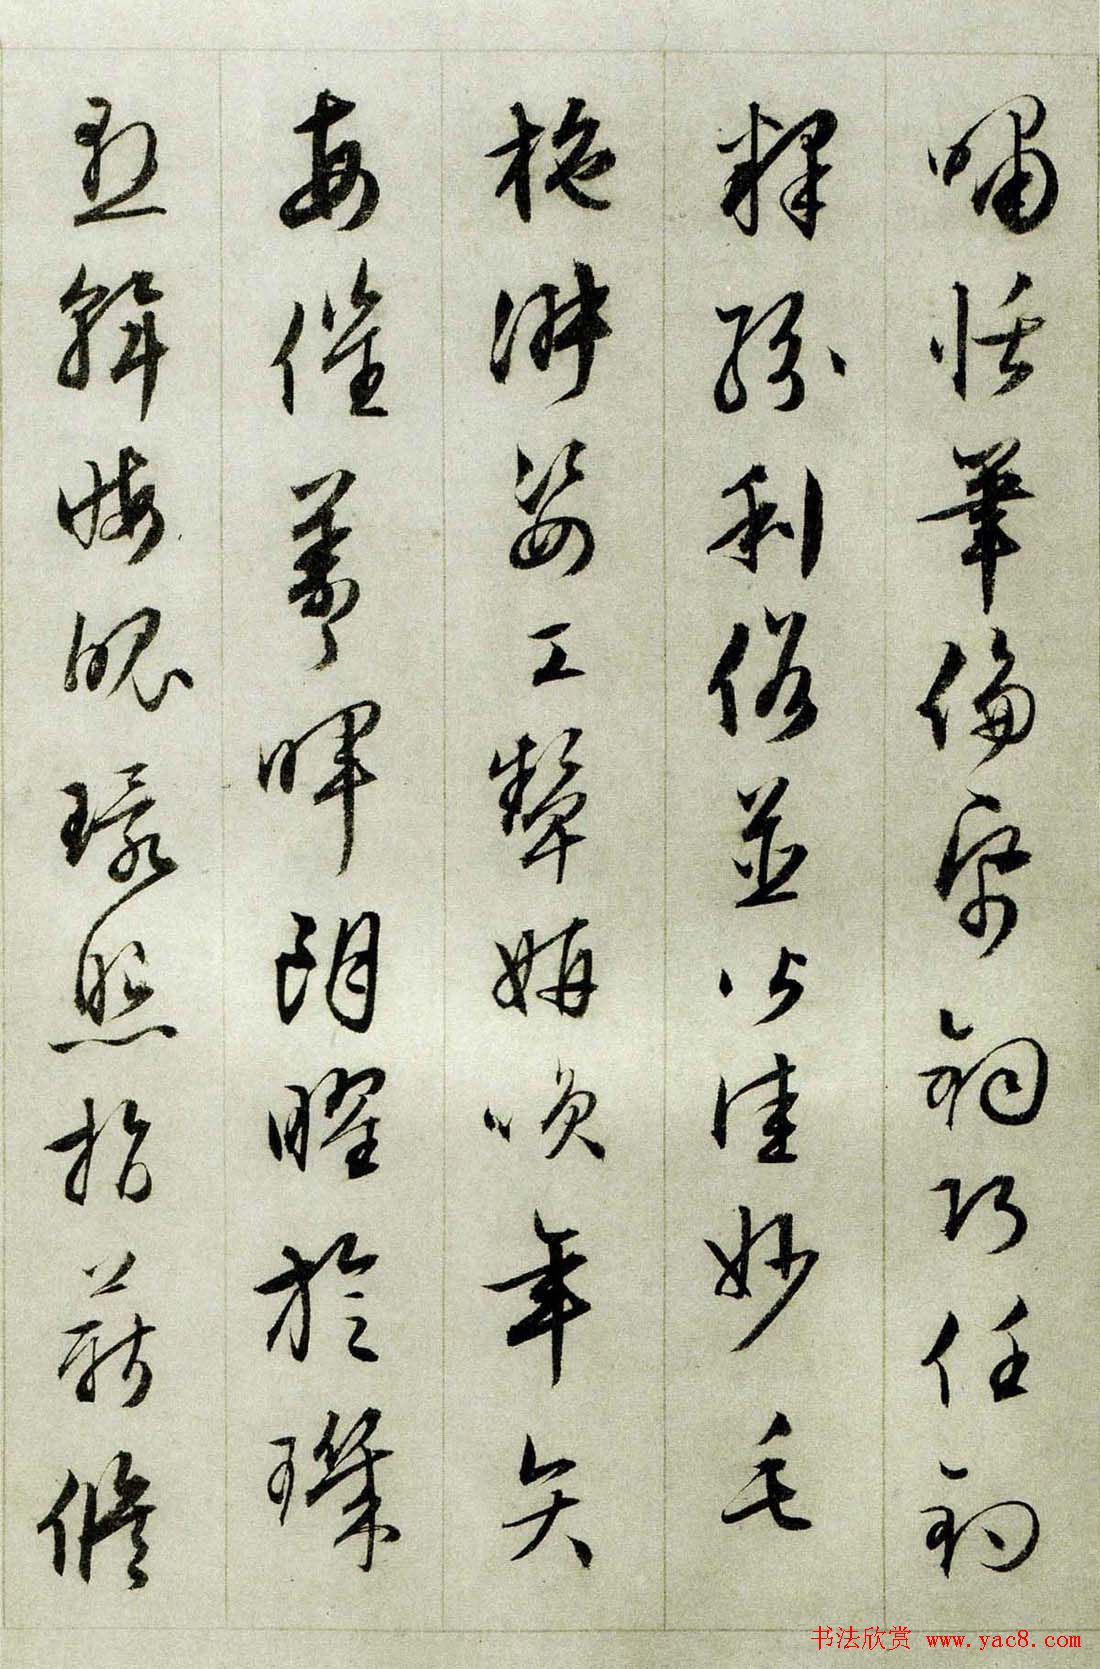 嘯恬筆倫帋鈞巧任釣
釋紛利俗並皆佳妙毛
施淑姿工顰妍咲年矢
每催羲暉朗曜旋璣
懸斡晦魄環照指薪脩
书法欣赏 www.yac8.com